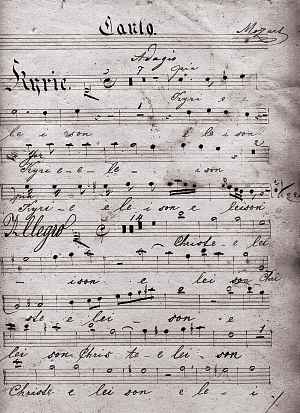 Canto.
Mozart
Adagio
Kyrie. 3 7 pia
Kyri e
le i son e le i son
Kyri e - e - le - i son
Kyri - e e le i son e leison
Allegro 14
Christe - e lei
i son - e lei son Chri
ste - e lei - son - e
lei son Chris te - e lei - son
Christe e lei son e le - i